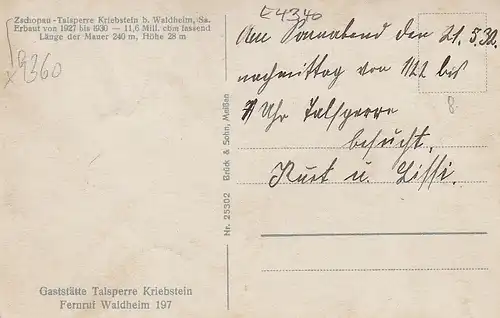 Zschopau-Talsperre Kriebstein b. Waldheim, Sa.
Erbaut von 1927 bis 1930 — 11,6 Mill. cbm fassend
Länge der Mauer 240 m, Höhe 28 m
9360
L 4340
Am Sonnabend den 21.5.32.
nachmittag von 1/22 bis
7 Uhr Talsperre
besucht.
Kurt u. Lissi.
8
Nr. 25302 Brück & Sohn, Meißen
Gaststätte Talsperre Kriebstein
Fernruf Waldheim 197